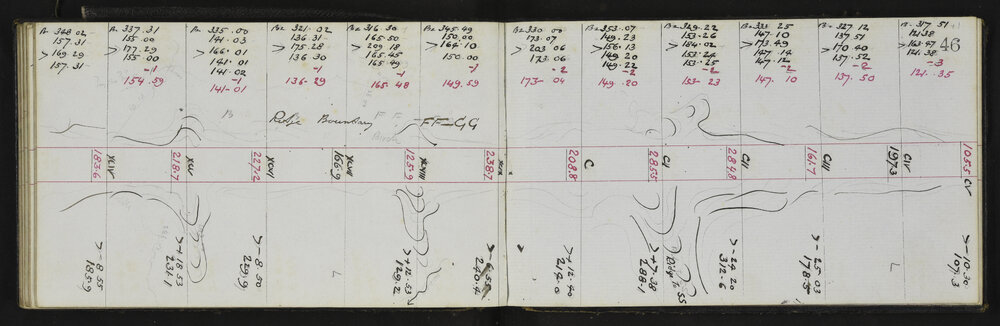 157.31
169.29
157.31
337.31
155.00
177.29
155.00
-1
154.59
335.00
141.03
166.01
141.01
141.02
-1
141-01
321.02
136.31
175.28
136.30
-1
136.29
316.30
165.50
209.18
165.48
165.49
-1
165.48
345.49
150.00
164.10
150.00
-1
149.59
330.00
173.07
203.06
173.06
-2
173-04
353.07
149.23
156.13
149.20
149.22
-2
149.20
329.22
153.26
184.02
153.24
153.25
-2
153-23
331.25
147.10
173.49
147.14
147.12
-2
147.10
327.12
137.51
170.40
137.52
-2
137.50
317.51
121.38
163.47
121.38
-3
121.35
46
Ridge Boundary FF=GG
183.6
XCIV
218.7
XCV
227.2
XCVI
166.9
XCVII
125.9
XCVIII
238.7
208.8
C
285.5
CI
284.8
CII
161.7
CIII
197.3
CIV
105.5
CV
>-8.55
185.9
>+18.53
231.1
>-8.50
229.9
L
>+12.53
129.2
240.4
>+12.40
214.0
>+7.38
288.1
>-24.20
312.6
>-25.03
178.5
L
>-10.30
107.3